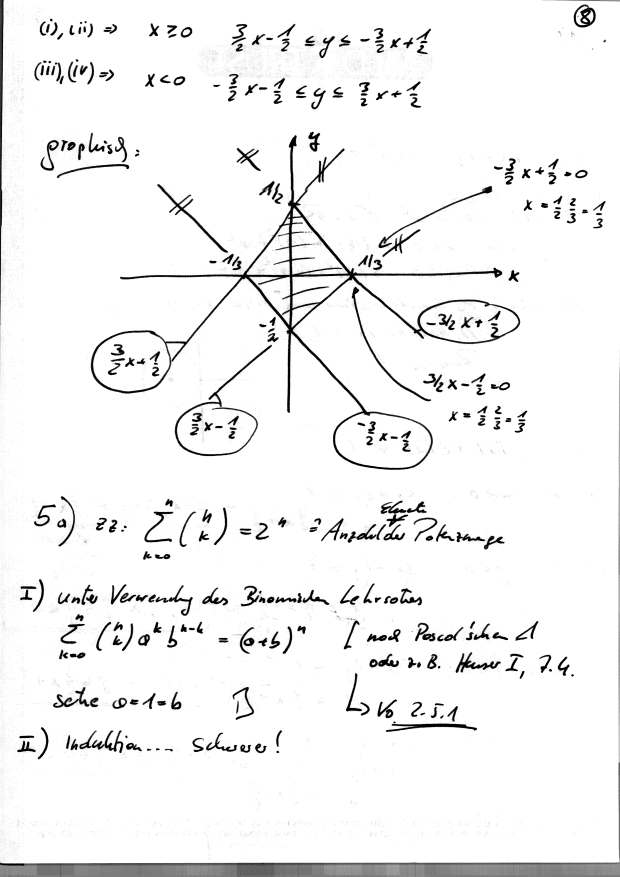 ⑧
(i), (ii) => x ≥ 0 3/2 x - 1/2 ≤ y ≤ -3/2 x + 1/2
(iii), (iv) => x < 0 -3/2 x - 1/2 ≤ y ≤ 3/2 x + 1/2
graphisch:
y
1/2
-3/2 x + 1/2 = 0
x = 1/2 2/3 = 1/3
-1/3
1/3
x
-1/2
-3/2 x + 1/2
3/2 x + 1/2
3/2 x - 1/2 = 0
x = 1/2 2/3 = 1/3
3/2 x - 1/2
-3/2 x - 1/2
Elemente
5a) zz: ∑_{k=0}^{n} (n k) = 2^n ≙ Anzahl der Potenzmenge
I) unter Verwendung des Binomischen Lehrsatzes
∑_{k=0}^{n} (n k) a^k b^{n-k} = (a+b)^n [ nach Pascal'schen Δ
oder z. B. Heuser I, 7.4.
setze a=1=b
↳ Vo 2.5.1
II) Induktion.... schwerer!